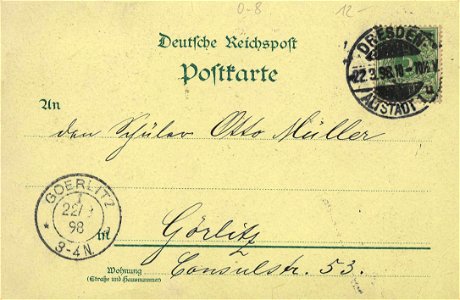 0-8 12-
Deutsche Reichspost
Postkarte
DRESDEN-
22.3.98.10-10½V
ALTSTADT
An
den Schüler Otto Müller
GOERLITZ
1
22/3
98
3-4N.
in Görlitz
Wohnung Consulstr. 53.
(Straße und Hausnummer)